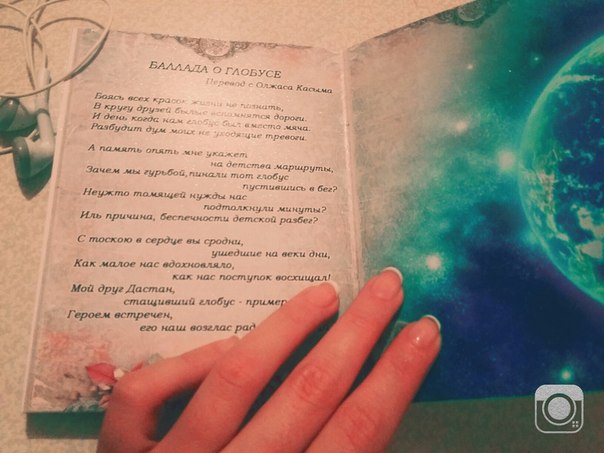 БАЛЛАДА О ГЛОБУСЕ
Перевод с Олжаса Касыма
Боясь всех красок жизни не познать,
В кругу друзей былые вспомнятся дороги.
И день когда нам глобус был вместо мяча.
Разбудит дум моих не уходящие тревоги.
А память опять мне укажет
на детства маршруты,
Зачем мы гурьбой, пинали тот глобус
пустившись в бег?
Неужто томящей нужды нас
подтолкнули минуты?
Иль причина, беспечности детской разбег?
С тоскою в сердце вы сродни,
ушедшие на веки дни,
Как малое нас вдохновляло,
как нас поступок восхищал!
Мой друг Дастан,
стащивший глобус - пример
Героем встречен,
его наш возглас рад